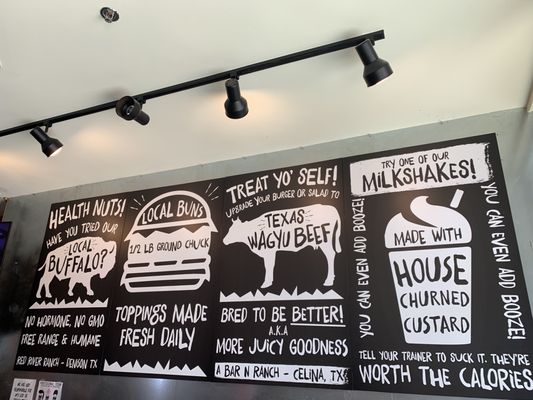 HEALTH NUTS!
HAVE YOU TRIED OUR
LOCAL
BUFFALO?
NO HORMONE, NO GMO
FREE RANGE & HUMANE
RED RIVER RANCH - DENISON TX
LOCAL BUNS
1/2 LB GROUND CHUCK
TOPPINGS MADE
FRESH DAILY
TREAT YO' SELF!
UPGRADE YOUR BURGER OR SALAD TO
TEXAS
WAGYU BEEF
BRED TO BE BETTER!
A.K.A
MORE JUICY GOODNESS
A BAR N RANCH - CELINA, TX
TRY ONE OF OUR
MILKSHAKES!
YOU CAN EVEN ADD BOOZE!
MADE WITH
HOUSE
CHURNED
CUSTARD
YOU CAN EVEN ADD BOOZE!
TELL YOUR TRAINER TO SUCK IT. THEY'RE
WORTH THE CALORIES